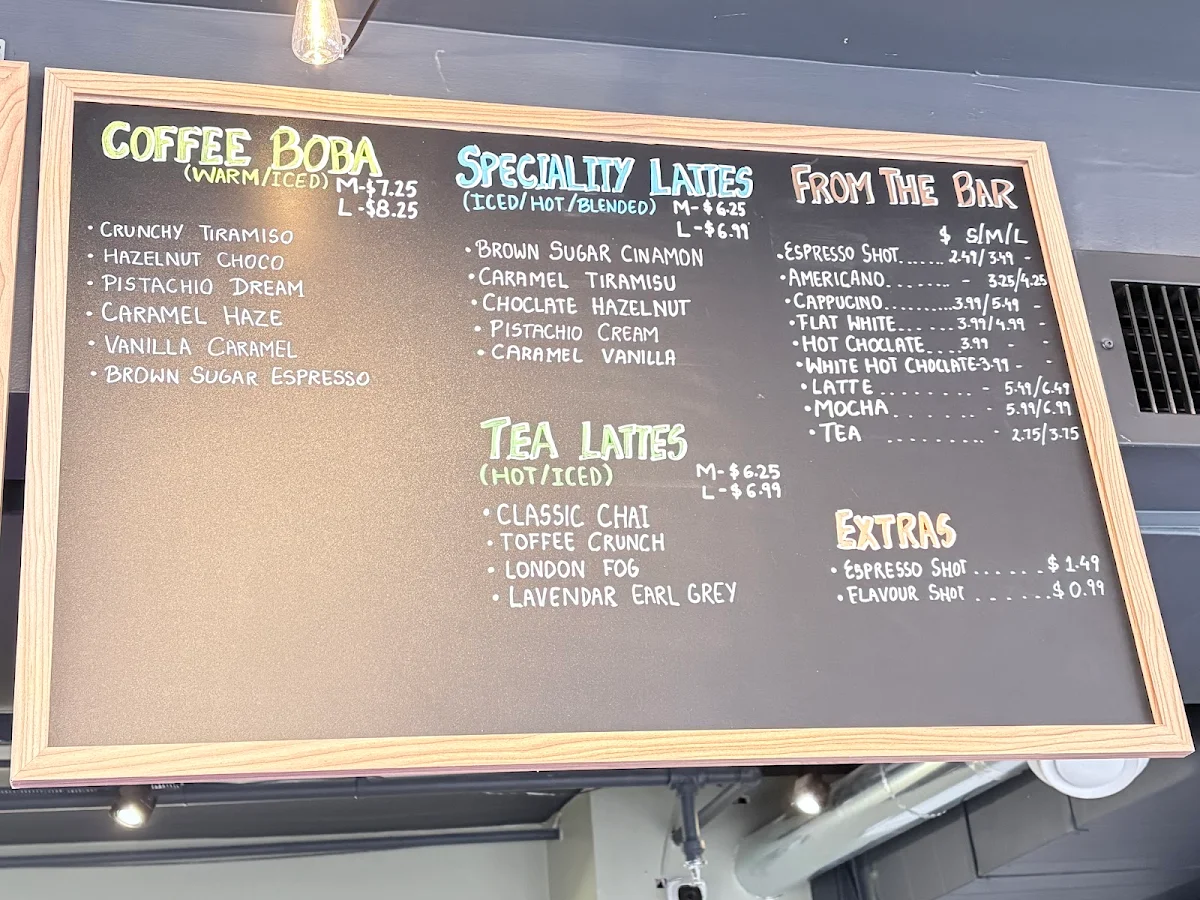 COFFEE BOBA
(WARM/ICED) M-$7.25
L-$8.25
• CRUNCHY TIRAMISO
• HAZELNUT CHOCO
• PISTACHIO DREAM
• CARAMEL HAZE
• VANILLA CARAMEL
• BROWN SUGAR ESPRESSO
SPECIALITY LATTES
(ICED/HOT/BLENDED) M-$6.25
L-$6.99
• BROWN SUGAR CINAMON
• CARAMEL TIRAMISU
• CHOCLATE HAZELNUT
• PISTACHIO CREAM
• CARAMEL VANILLA
TEA LATTES
(HOT/ICED) M-$6.25
L-$6.99
• CLASSIC CHAI
• TOFFEE CRUNCH
• LONDON FOG
• LAVENDAR EARL GREY
FROM THE BAR
$ S/M/L
• ESPRESSO SHOT...... 2.49/3.49 -
• AMERICANO........ - 3.25/4.25
• CAPPUCINO.........3.99/5.49 -
• FLAT WHITE...... 3.99/4.99 -
• HOT CHOCLATE....3.99 - -
• WHITE HOT CHOCLATE-3.99 - -
• LATTE ......... - 5.49/6.49
• MOCHA ........ - 5.99/6.99
• TEA .......... - 2.75/3.75
EXTRAS
• ESPRESSO SHOT ......$ 1.49
• FLAVOUR SHOT ......$ 0.99